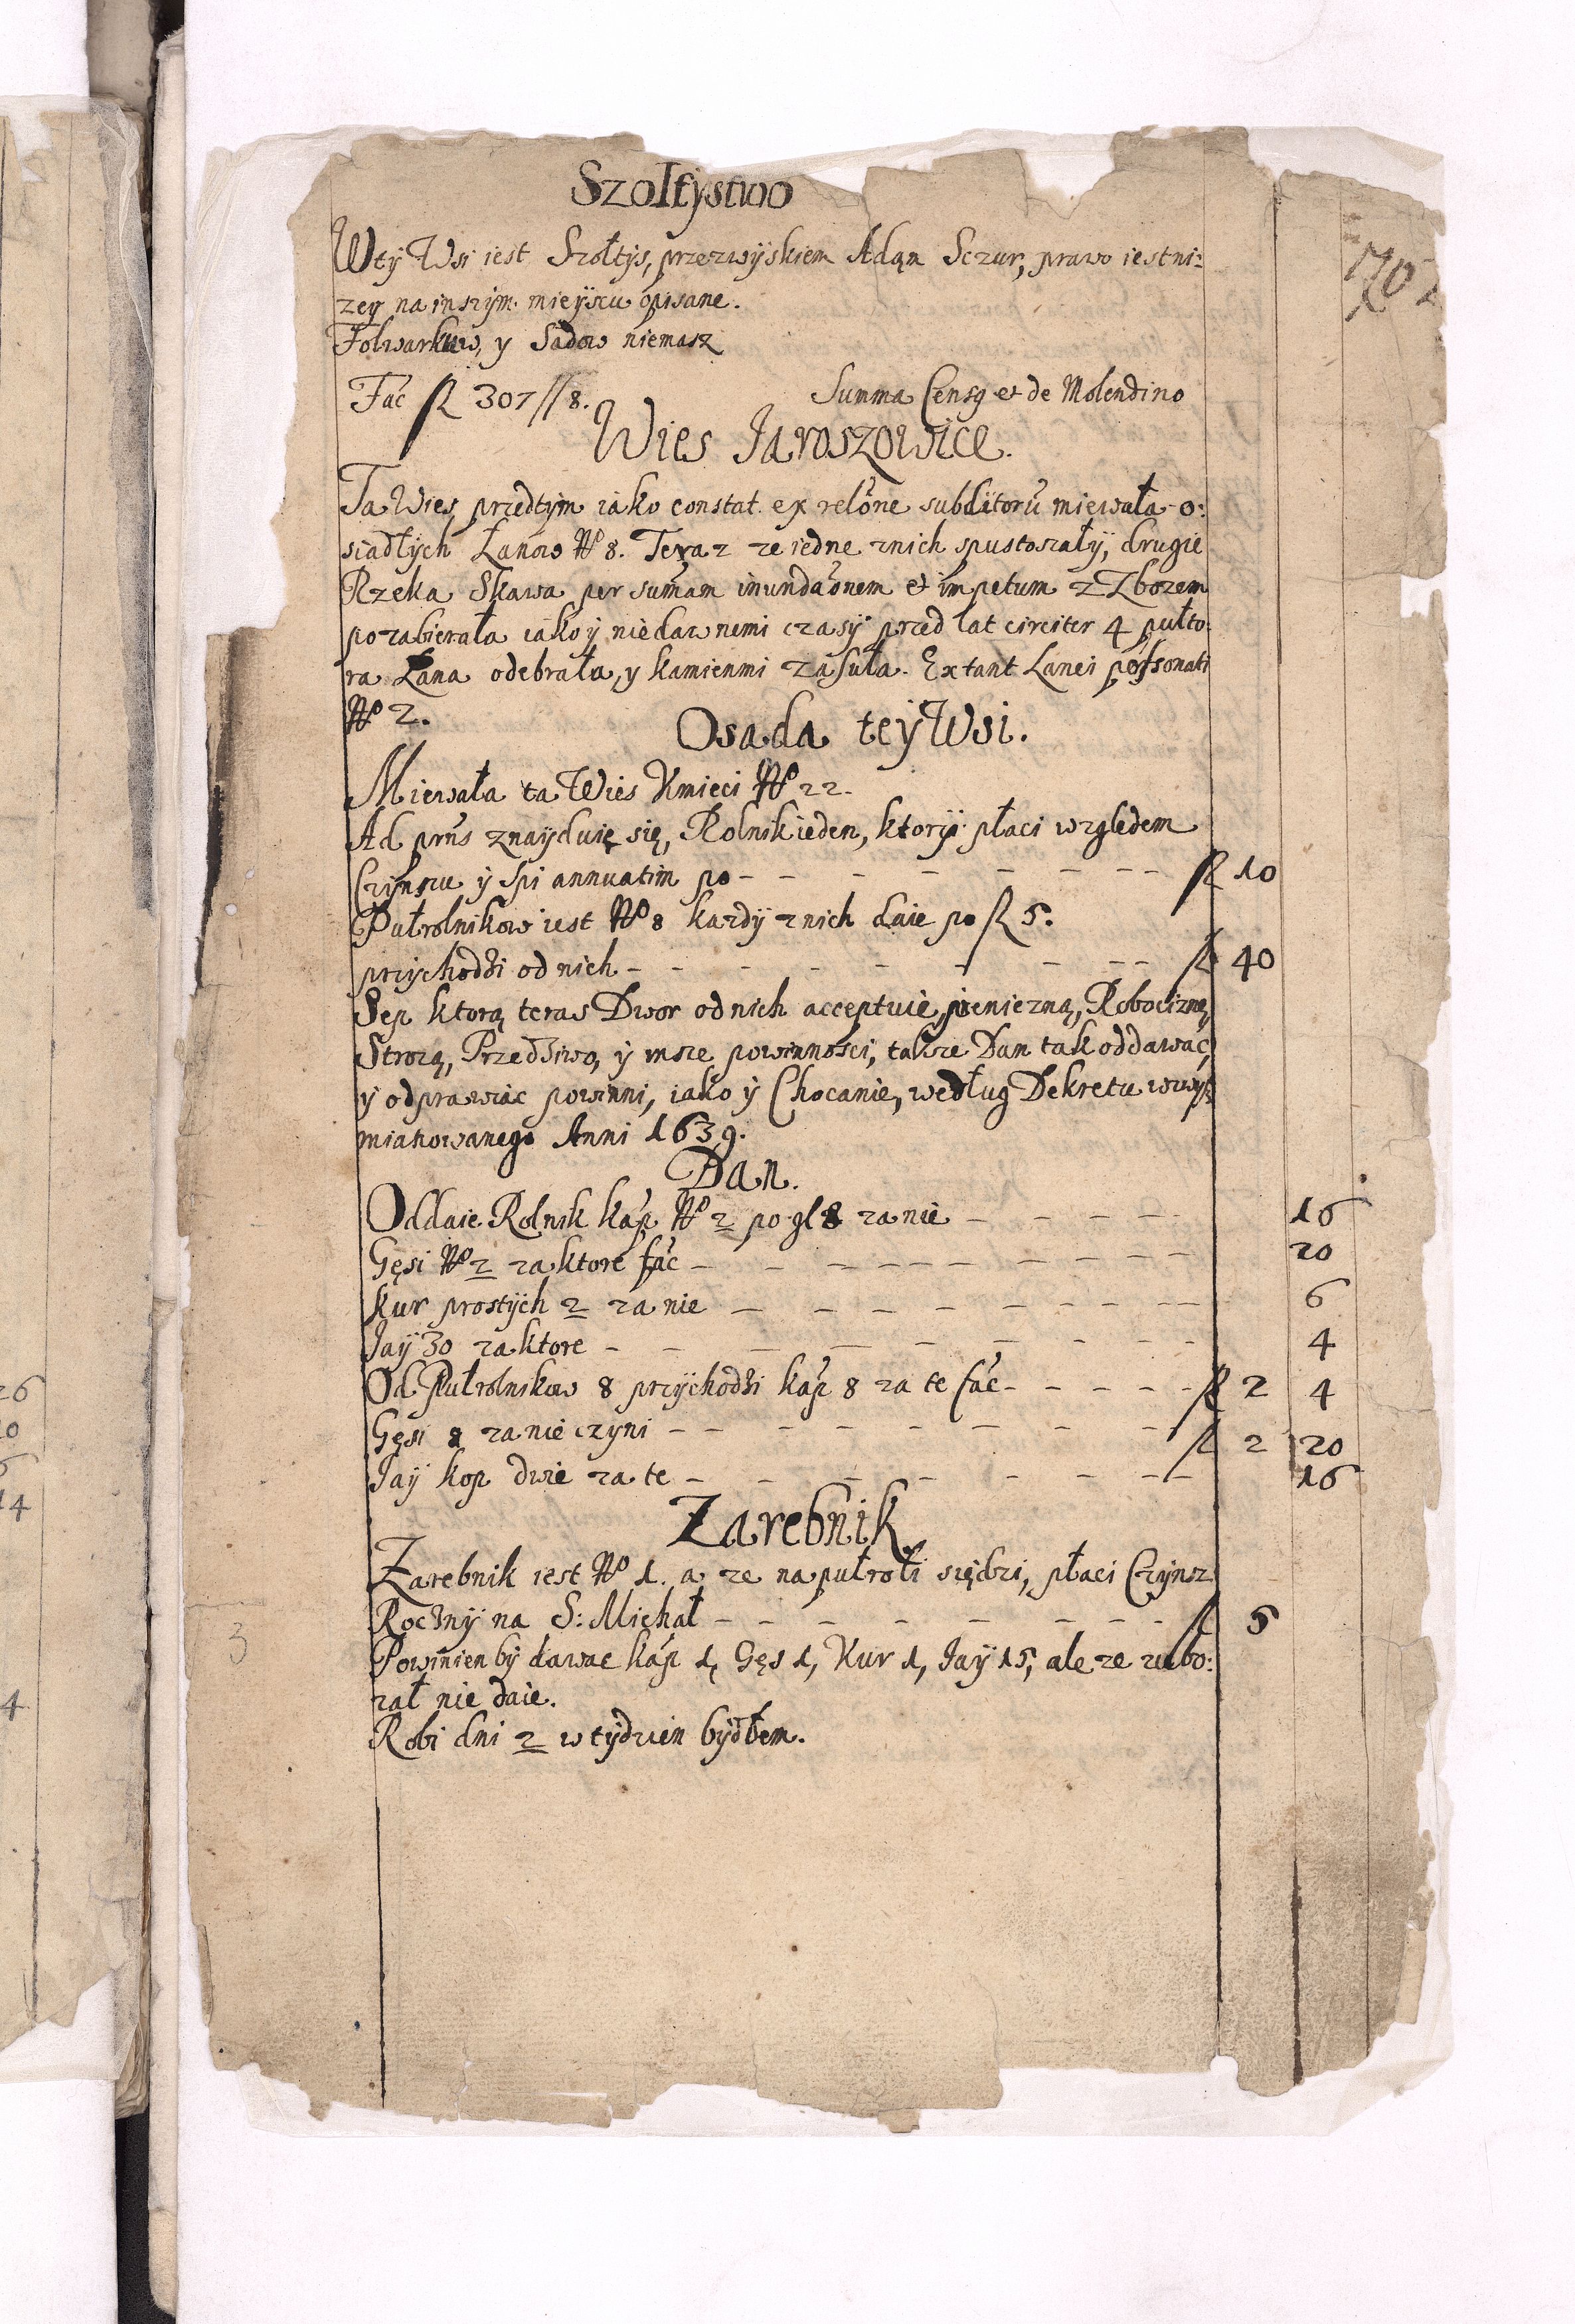 Szołtystwo
70
Wtÿ Wsi iest Szołtÿs, przezwÿskiem Adąm Sczur, prawo iest ni:
zeÿ na inszÿm mieÿscu opisane.
Folwarkow, y Sadow niemasz
Fac fl 307 // 8. Summa Censq et de Molendino
Wies Jaroszowice.
Ta Wies przedtÿm iako constat ex relõne subditorũ miewała o:
siadłÿch Łanow No 8. Teraz ze iedne znich spustoszałÿ, drugie
Rzeka Skawa per sumam inundãonem et impetum z Zbozem
pozabierała iako ÿ niedawnemi czasÿ przed lat circiter 4 pułto:
ra Łana odebrała, y kamienmi zasuła. Extant Lanei possonati
No 2.
Osada teÿ Wsi.
Miewała ta Wies Kmieci No 22.
Ad prns znaÿduię się, Rolnik ieden, ktorÿ płaci względem
Czÿnszu ÿ Spi annuatim po - - - - - - - - fl 10
Pułrolnikow iest No 8 kazdÿ znich daie po fl 5.
przÿchodzi od nich - - - - - - - - - fl 40
Sep ktorą teras Dwor od nich acceptuie, pieniezną, Robociznę,
Strozą, Przedziwo, ÿ insze powinnosci, takze Dan tak oddawac,
ÿ odprawiac powinni, iako ÿ Chocanie, według Dekretu wwÿz
mianowanego Anni 1639.
Dan.
Oddaie Rolnik káp No 2 po gl 8 zanie - - - - - 16
Gęsi No 2 za ktore fác - - - - - - - - - 20
Kur prostÿch 2 zanie - - - - - - - - - 6
Jaÿ 30 za ktore - - - - - - - - 4
Od Pułrolnikow 8 przÿchodzi káp 8 za te fác - - - - - fl 2 4
Gęsi 8 zanie czyni - - - - - - - - fl 2 20
Jaÿ kop dwie za te - - - - - - - - 16
Zarebnik
Zarebnik iest No 1. a ze na pułroli siędzi, płaci Czÿnsz
Rocznÿ na S: Michał - - - - - - - - fl 5
Powinien bÿ dawac káp 1, Gęs 1, Kur 1, Jaÿ 15, ale ze zubo:
zał nie daie.
Robi dni 2 w tÿdzien bÿdłem.
3
26
14
4